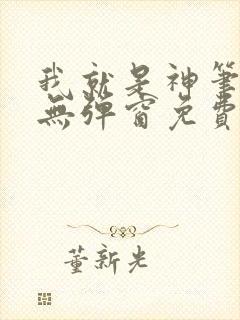 我就是神筆
無彈窗免費
董新光